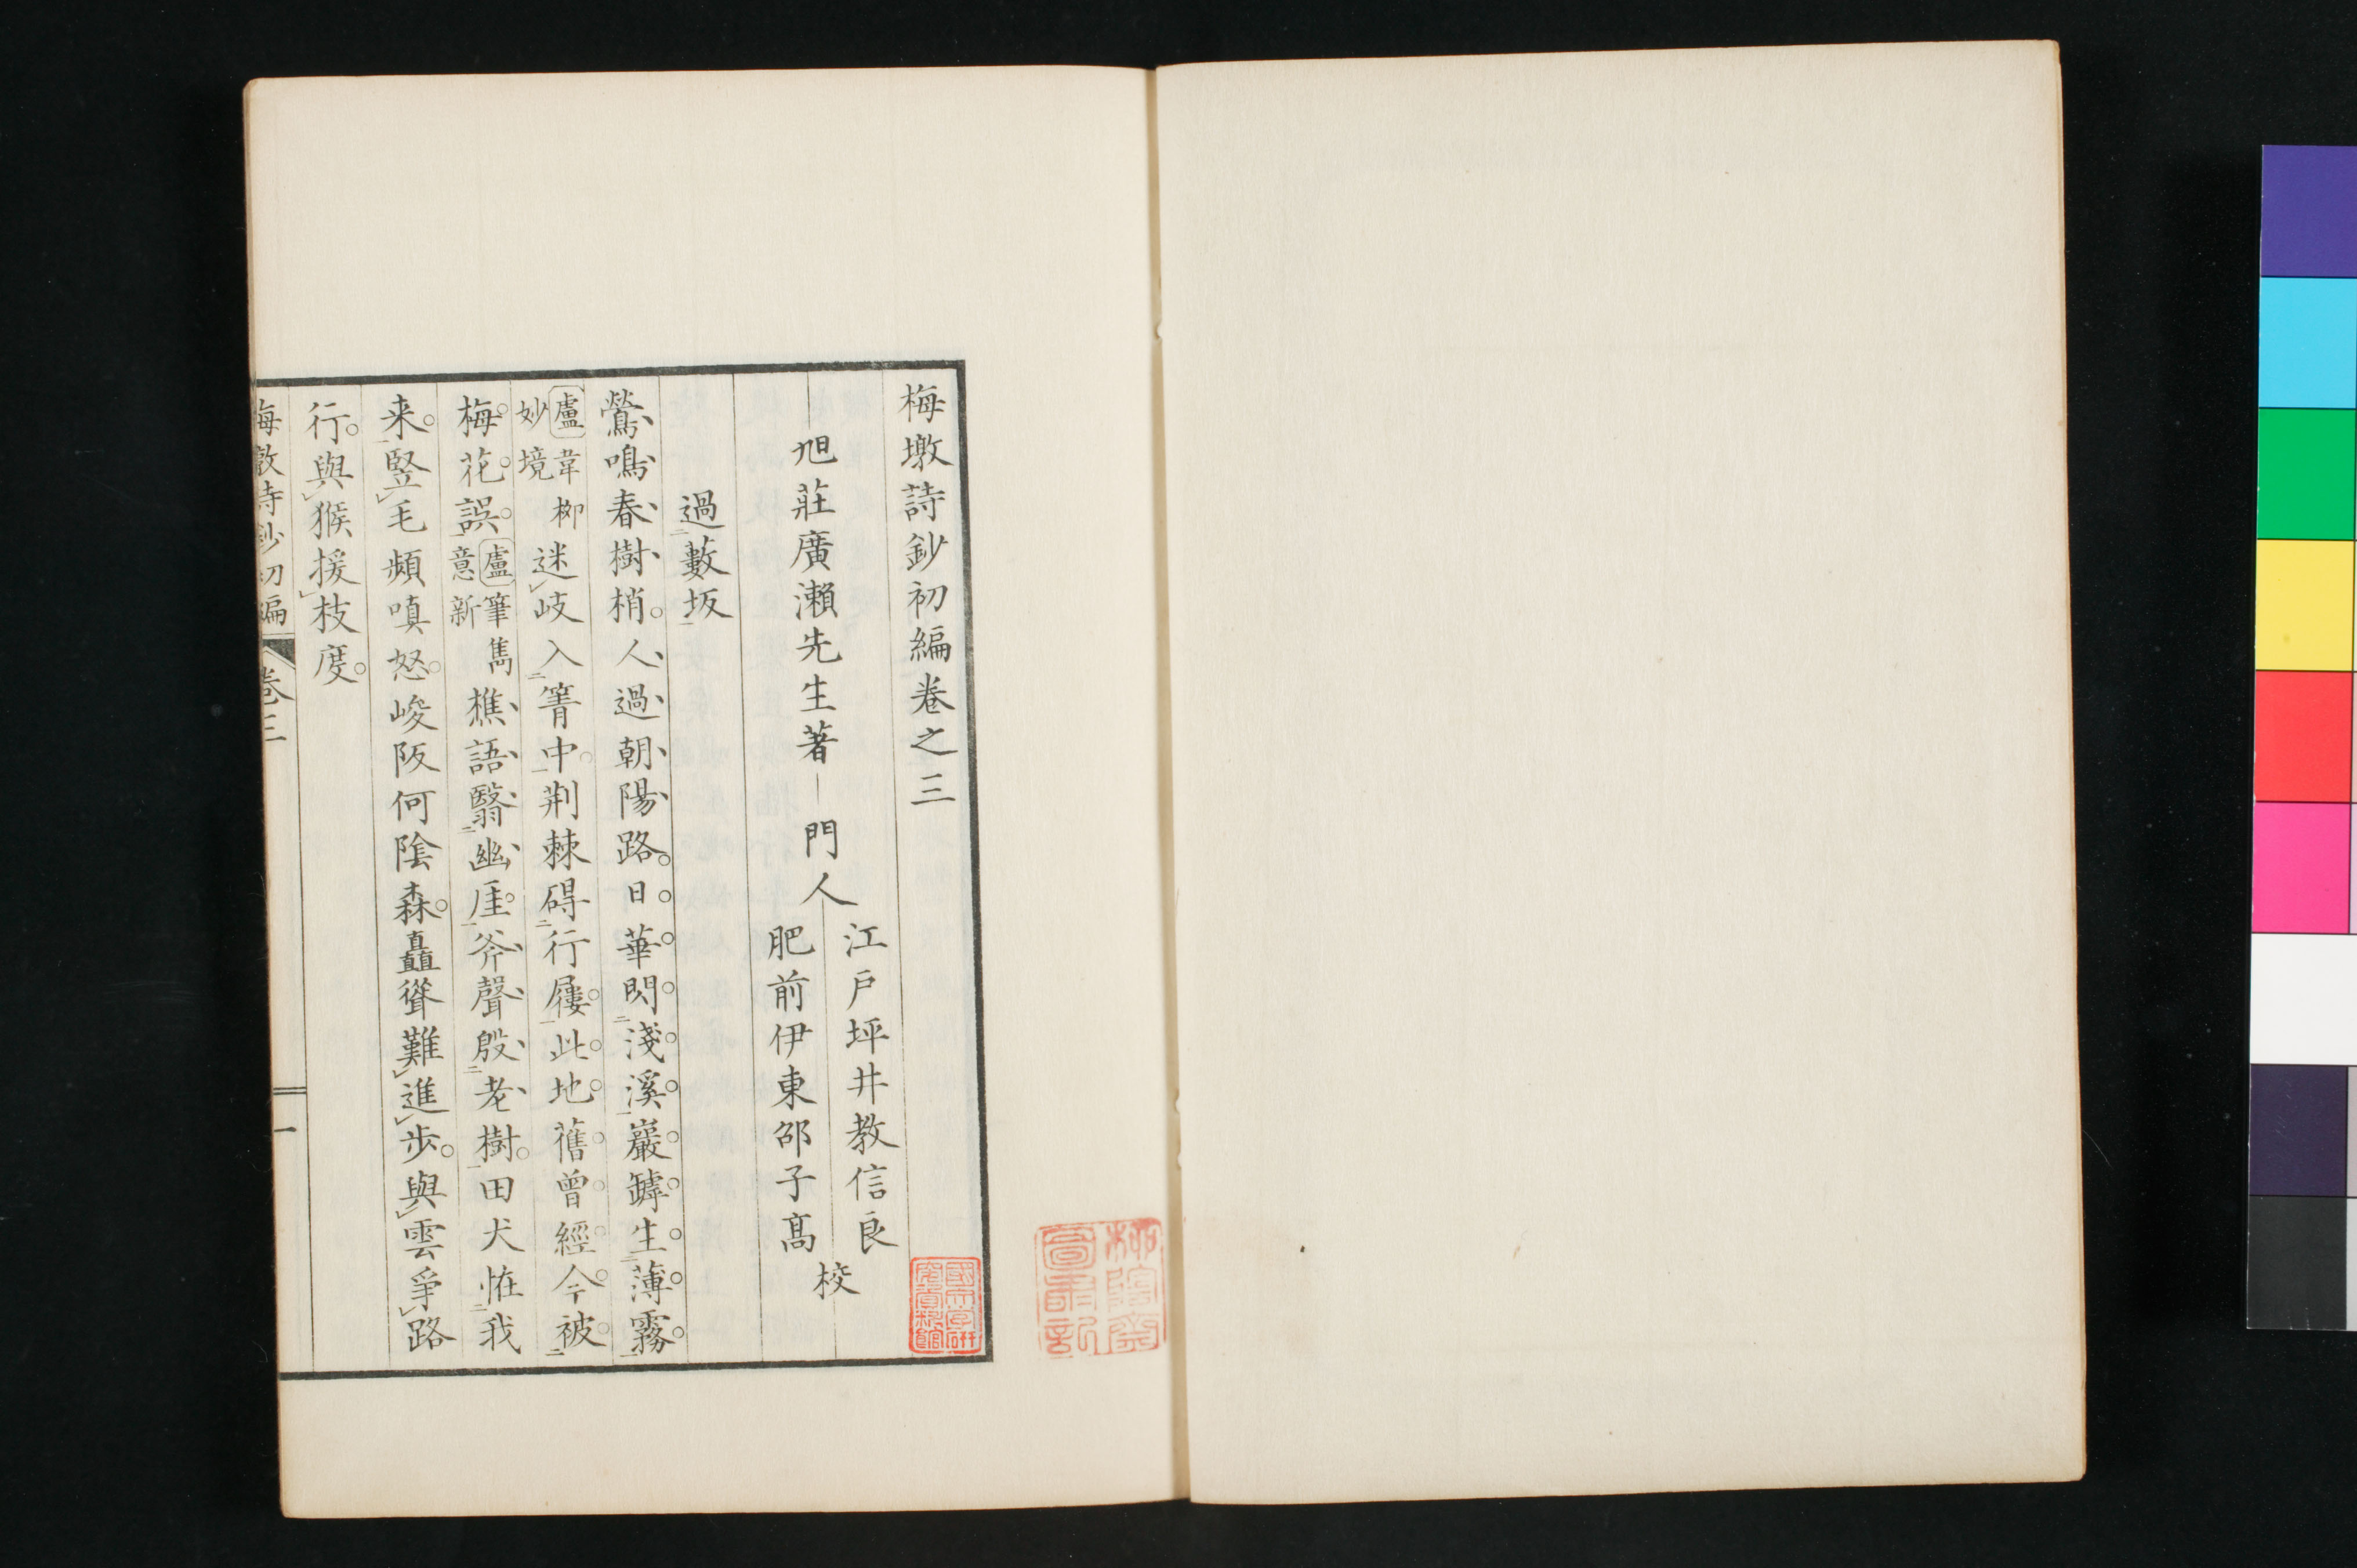 梅墩詩鈔初編卷之三
旭莊廣瀨先生著 門人
江戸坪井教信良
肥前伊東邵子髙
校
過藪坂
鶯鳴春樹梢人過朝陽路日華閃淺溪巖罅生薄霧
盧韋柳妙境
迷岐入箐中荆棘碍行屨此地舊曾經今被
梅花誤
盧筆雋意新
樵語翳幽厓斧聲殷老樹田犬恠我
来豎毛頻嗔怒峻阪何陰森矗聳難進步與雲爭路
行與猴援枝度
梅墩詩鈔初編 卷三 一
國文學研究資料館
柳陰齋圖書記